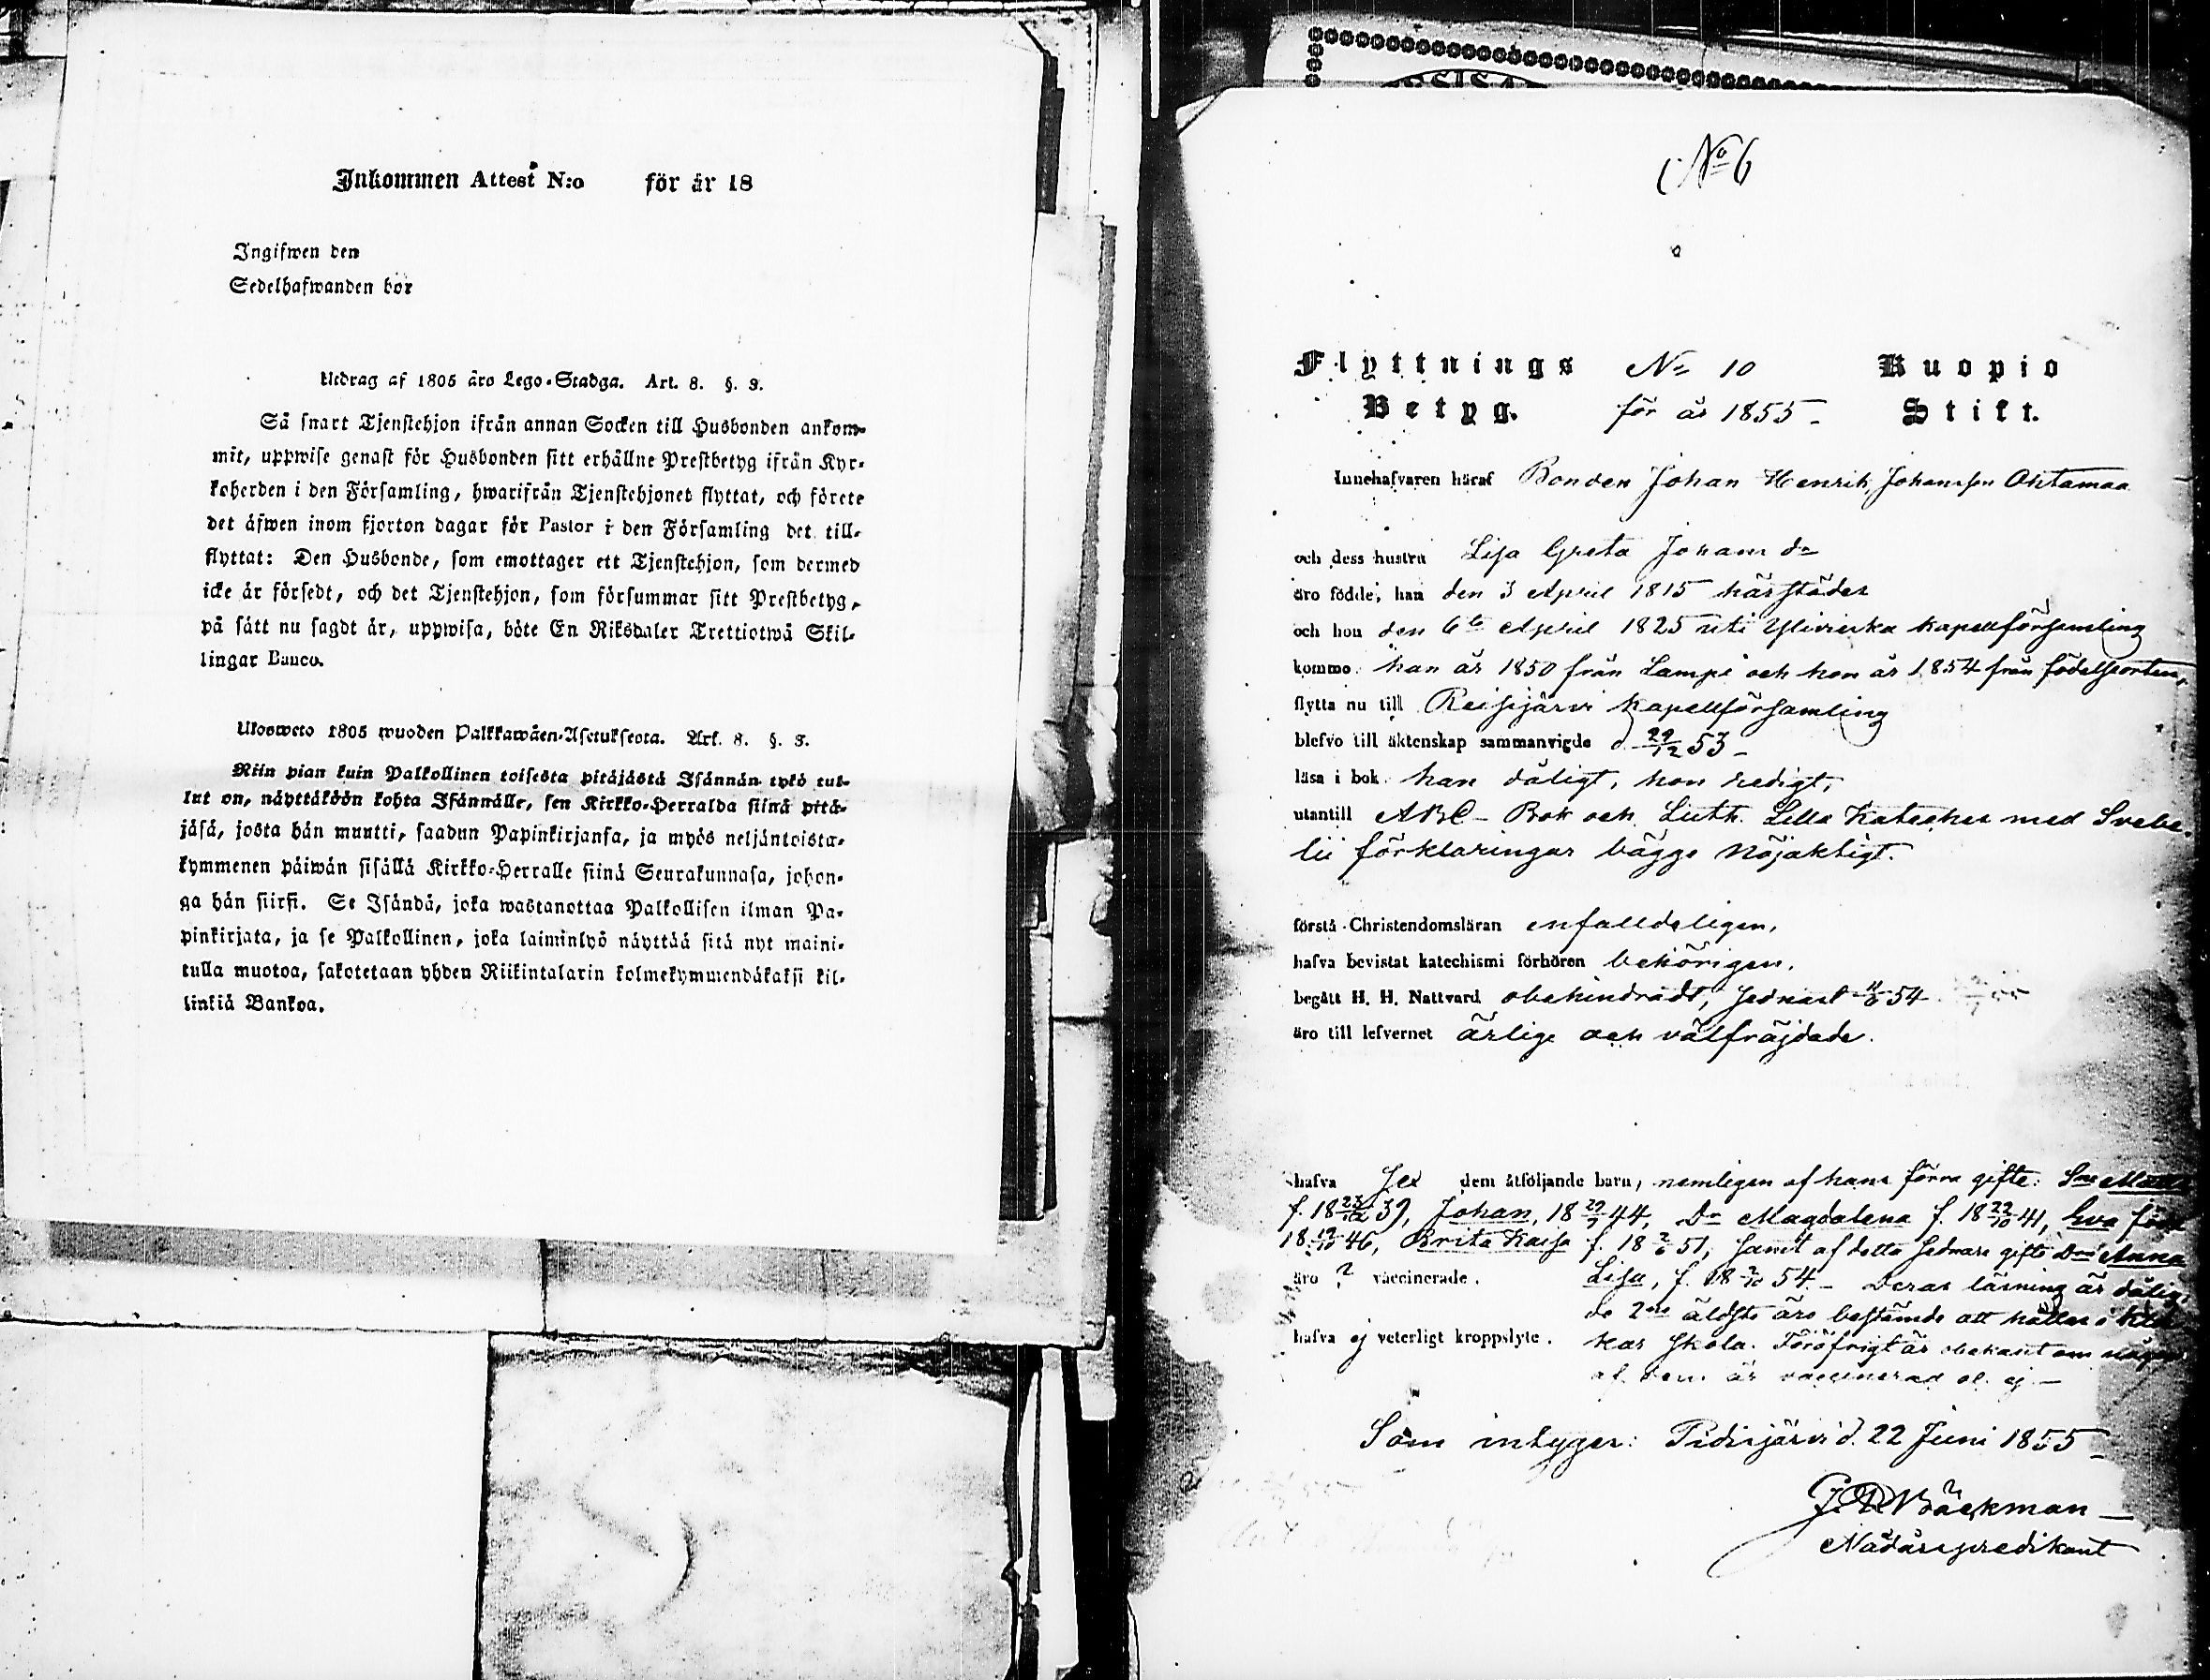 Inkommen Attest N:o för år 18
Ingifwen den
Sedelhafwanden bör
Utdrag af 1805 års Lego-Stadga. Art. 8. §. 3.
Så snart Tjenstehjon ifrån annan Socken till Husbonden ankom-
mit, uppwise genast för Husbonden sitt erhållne Prestbetyg ifrån Kyr-
koherden i den Församling, hwarifrån Tjenstehjonet flyttat, och förete
det äfwen inom fjorton dagar för Pastor i den Församling det till-
flyttat: Den Husbonde, som emottager ett Tjenstehjon, som dermed
icke är försedt, och det Tjenstehjon, som försummar sitt Prestbetyg,
på sätt nu sagdt är, uppwisa, böte En Riksdaler Trettiotwå Skil-
lingar Banco.
Ulosweto 1805 wuoden Palkkawäen-Asetuksesta. Art. 8. §. 3.
Niin pian kuin Palkollinen toisesta pitäjästä Isännän tykö tul-
lut on, näyttäköön kohta Isännälle, sen Kirkko-Herralda siinä pitä-
jäsä, josta hän muutti, saadun Papinkirjansa, ja myös neljäntoista-
kymmenen päiwän sisällä Kirkko-Herralle siinä Seurakunnasa, johon-
ga hän siirsi. Se Isändä, joka wastanottaa Palkollisen ilman Pa-
pinkirjata, ja se Palkollinen, joka laiminlyö näyttää sitä nyt maini-
tulla muotoa, sakotetaan yhden Riikintalarin kolmekymmendäkaksi kil-
linkiä Bankoa.
No 6
Flyttnings No 10 Kuopio
Betyg. för år 1855 - Stift.
Innehafvaren häraf Bonden Johan Henrik Johansson Ohtamaa
och dess hustru Lisa Greta Johans dr
äro födde, han den 3 April 1815 härstädes
och hon den 6te April 1825 uti Ylivieska kapellförsamling
kommo han år 1850 från Lampi och hon år 1854 från födelseorten,
flytta nu till Reisijärvi kapellförsamling
blefvo till äktenskap sammanvigde d. 29/12 53 -
läsa i bok han dåligt, hon redigt,
utantill ABC-Bok och Luth. Lilla Kateches med Svebi-
lii förklaringar bägge nöjaktigt.
förstå Christendomsläran enfalldeligen,
hafva bevistat katechismi förhören behörigen,
begått H. H. Nattvard obehindradt, sednast 54
äro till lefvernet ärlige och välfräjdade.
hafva sex dem åtföljande barn, nemligen af hans förra gifte: Sne
f. 18 23/12 39, Johan, 18 29/7 44, Dr Magdalena f. 18 22/10 41, Eva född
18 46, Brita Kaisa f. 18 2/6 51, samt af detta sednare gifte Dren Anna
äro ? vaccinerade. Lisa, f. 18 2/10 54 - Deras läsning är dålig,
de 2ne äldste äro bestämde att hållas i
hafva ej veterligt kroppslyte. kas skola. Föröfrigt är obekant om någon
af dem är vaccinerad el. ej -
Som intyger: Pidisjärvi d. 22 Juni 1855 -
Bäckman -
Nådårspredikant